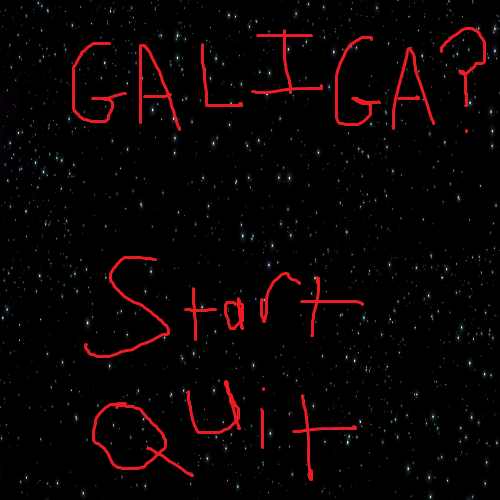 GALIGA?
Start
Quit